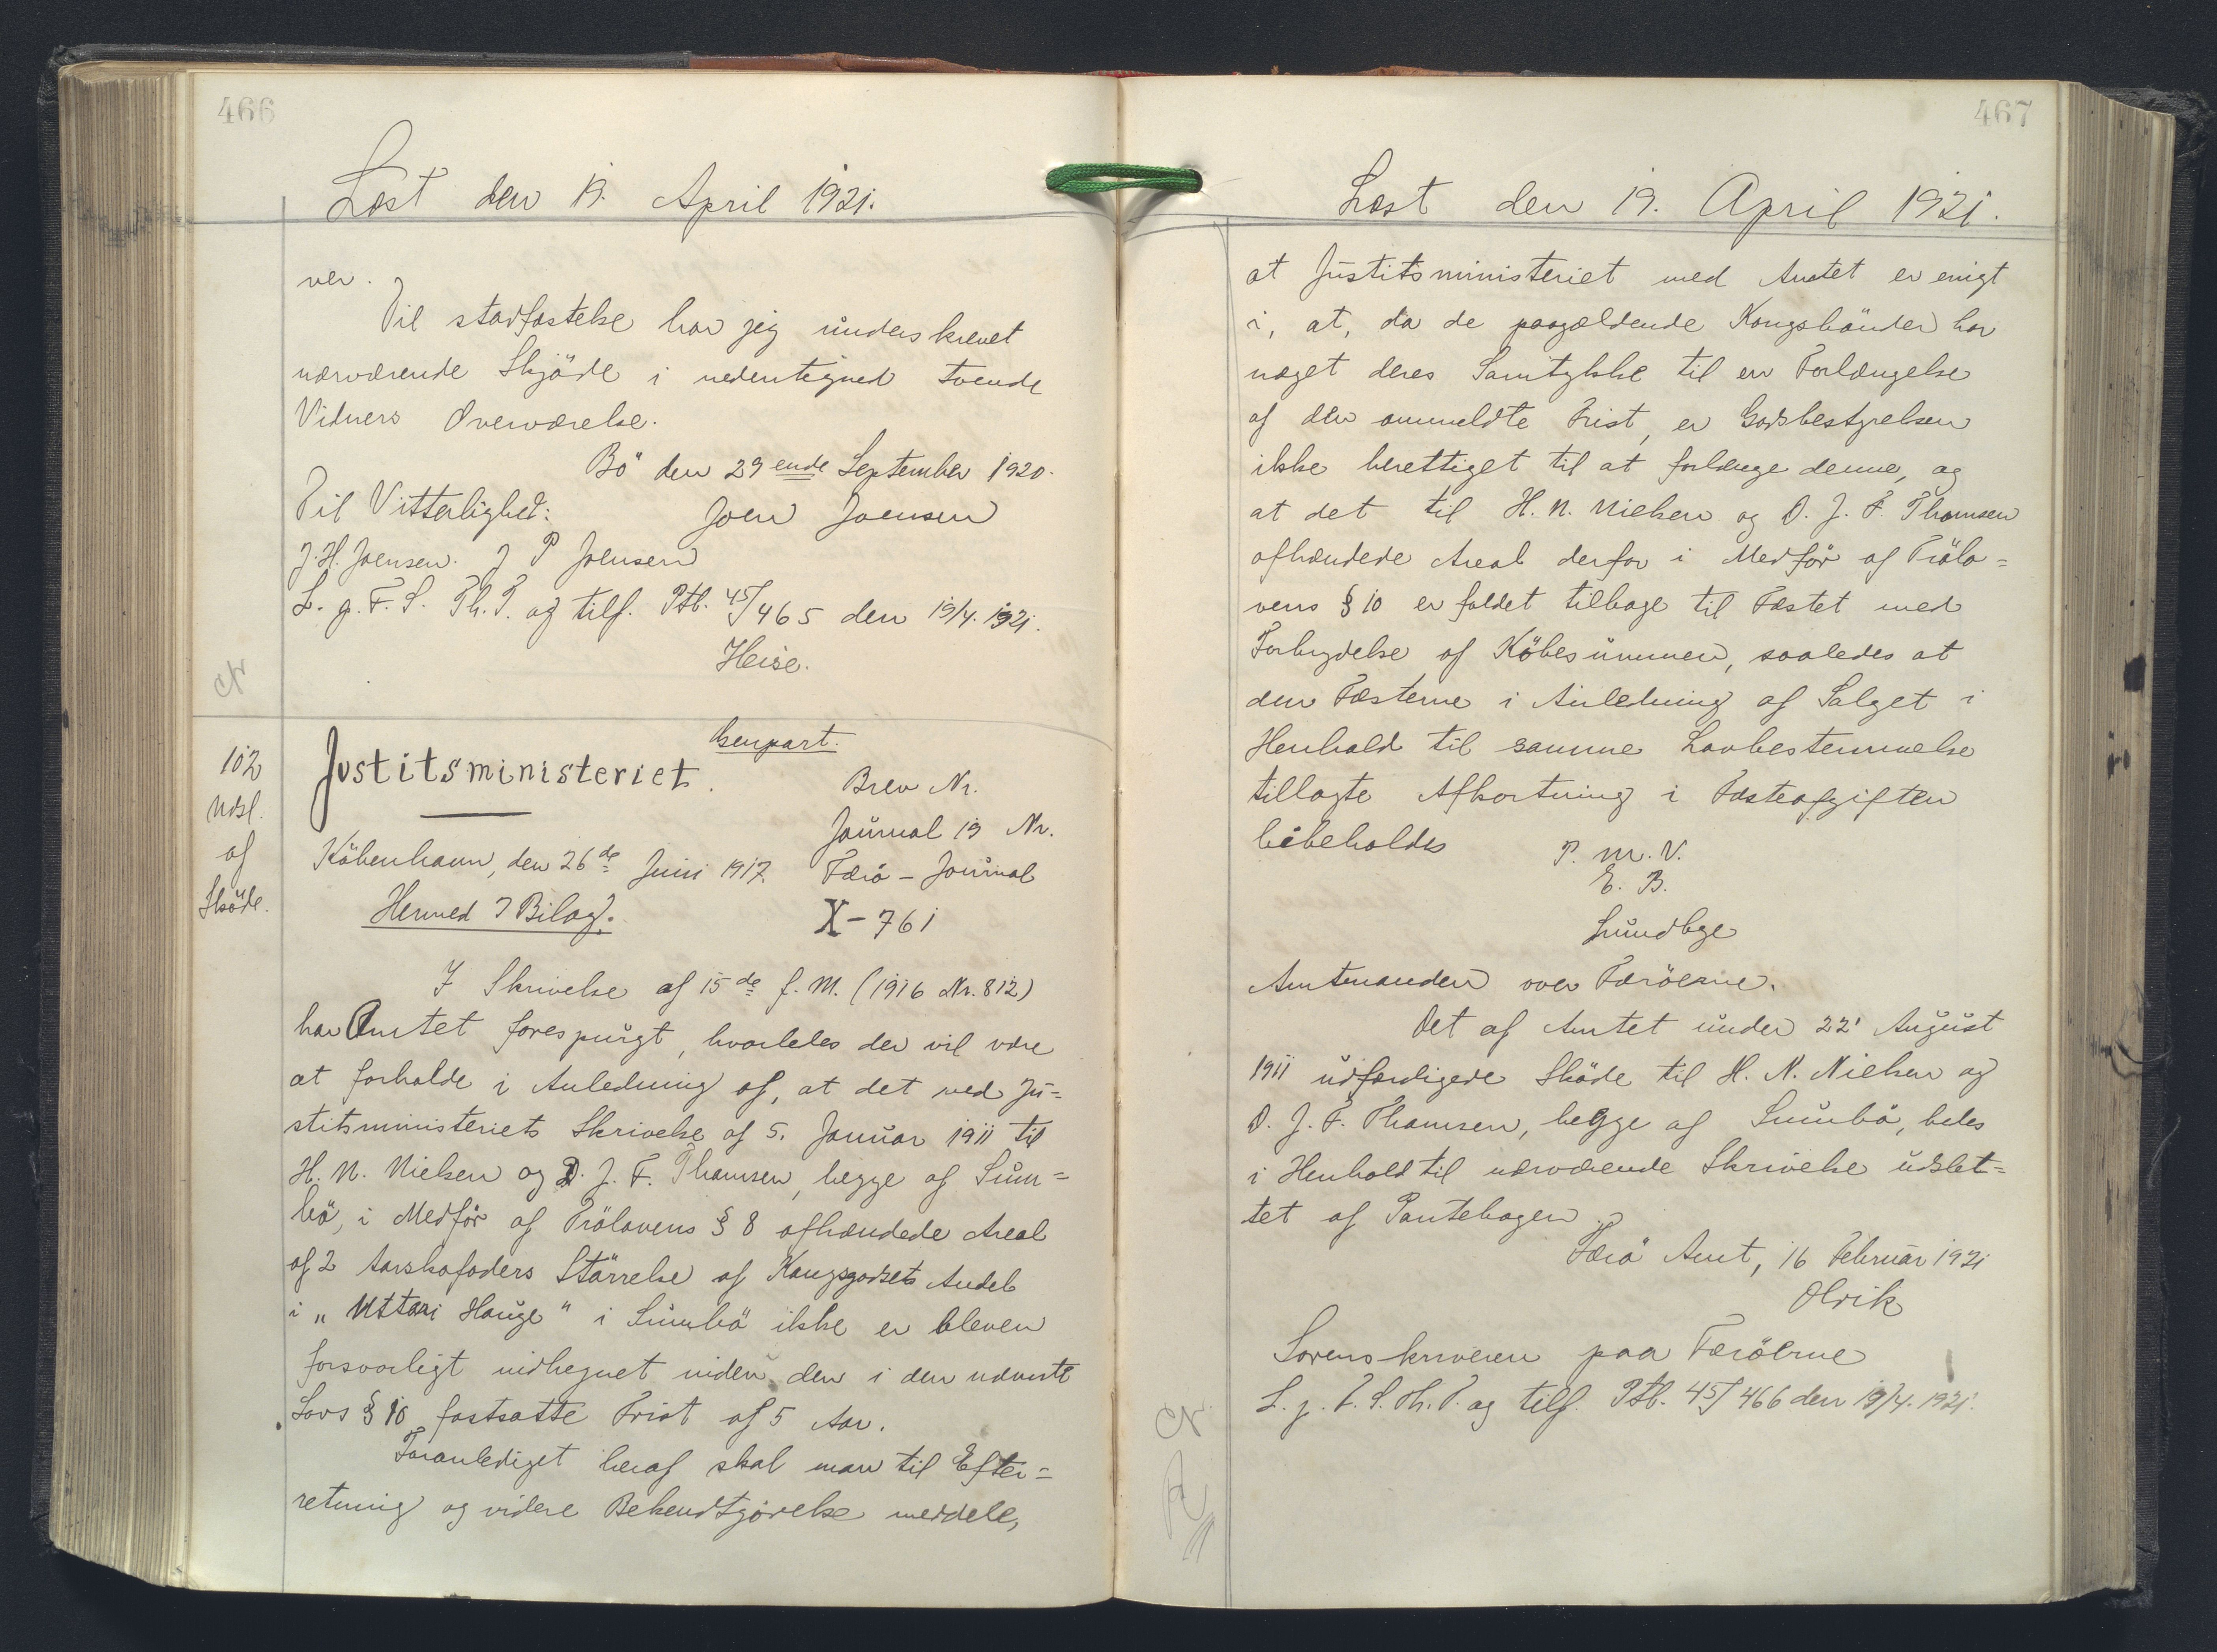 466
Læst den 19. April 1921.
ver.
Til stadfæstelse har jeg underskrevet
nærværende Skjöde i nedentegned tvende
Vidners Overværelse.
Bö den 29ende September 1920.
Til Vitterlighed: Joen Joensen
J. H. Joensen. J P Joensen
L. p. F. S. Th. T. og tilf. Ptb. 45/465 den 19/4. 1921.
Heise.
102
Udsl.
af
Sköde.
Genpart.
Justitsministeriet.
Brev Nr.
Journal 19 Nr.
Köbenhavn, den 26de Juni 1917. Færö - Journal
Hermed 7 Bilag. X - 761
I Skrivelse af 15de f. M. (1916 Nr. 812)
har Amtet forespurgt, hvorledes der vil være
at forholde i Anledning af, at det ved Ju=
stitsministeriets Skrivelse af 5. Januar 1911 til
H. N. Nielsen og D. J. F. Thomsen, begge af Sum=
bö, i Medför af Trölovens § 8 afhændede Areal
af 2 Aarskofoders Störrelse af Kongsgodsets Andel
i „Uttari Hauge" i Sumbö ikke er bleven
forsvarligt indhegnet inden den i den nævnte
Lovs § 10 fastsatte Frist af 5 Aar.
Foranlediget heraf skal man til Efter=
retning og videre Bekendtgörelse meddele,
467
Læst den 19. April 1921.
at Justitsministeriet med Amtet er enigt
i, at, da de paagældende Kongsbönder har
næget deres Samtykke til en Forlængelse
af den ommeldte Frist, er Godsbestyrelsen
ikke berettiget til at forlænge denne, og
at det til H. N. Nielsen og D. J. F. Thomsen
afhændede Areal derfor i Medför af Trölo=
vens § 10 er faldet tilbage til Fæstet med
Forbrydelse af Köbesummen, saaledes at
den Fæsterne i Anledning af Salget i
Henhold til samme Lovbestemmelse
tillagte Afkortning i Fæsteafgiften
bibeholdes
P. M. V.
E. B.
Lundbye
Amtmanden over Færöerne.
Det af Amtet under 22' August
1911 udfærdigede Sköde til H. N. Nielsen og
D. J. F. Thomsen, begge af Sumbö, bedes
i Henhold til nærværende Skrivelse udslet=
tet af Pantebogen.
Færö Amt, 16 Februar 1921
Olrik
Sorenskriveren paa Færöerne
L. p. F. S. Th. T. og tilf. Ptb. 45/466 den 19/4. 1921.